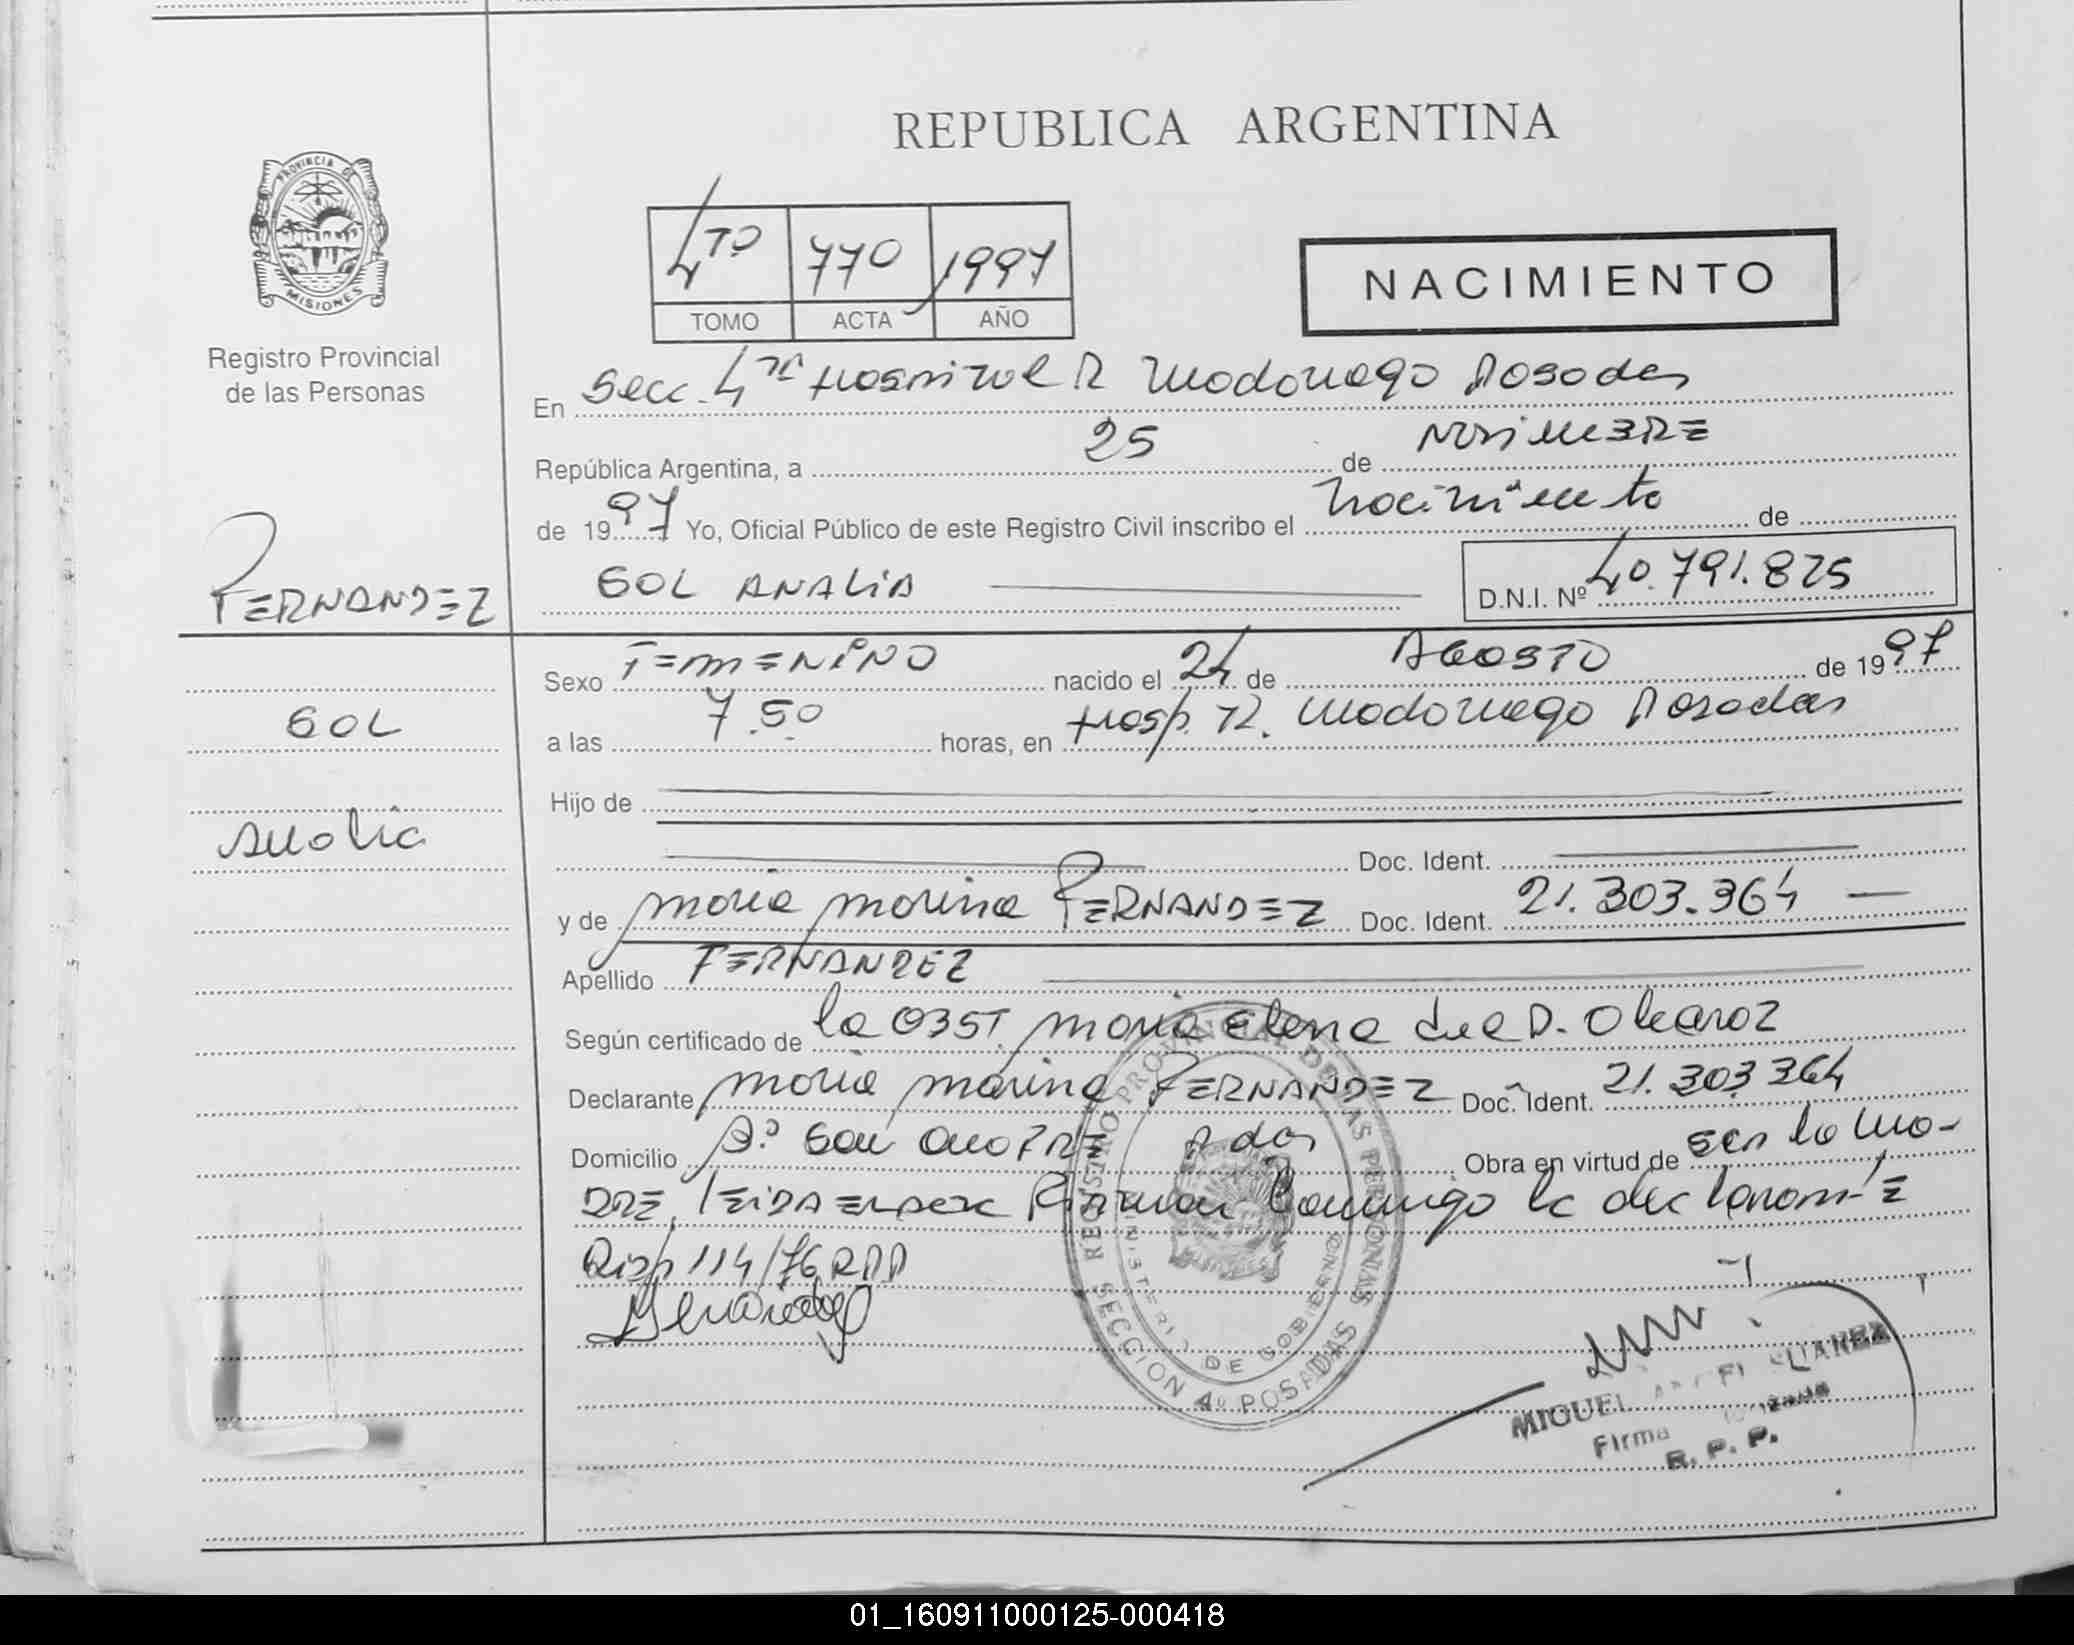 REPUBLICA ARGENTINA
PROVINCIA DE MISIONES
Registro Provincial
de las Personas
4TO 770 1997
TOMO ACTA AÑO
NACIMIENTO
En Secc. 4ta Hospital R Madariaga Posadas
República Argentina, a 25 de NOVIEMBRE
de 1997 Yo, Oficial Público de este Registro Civil inscribo el nacimiento de
SOL ANALIA D.N.I. Nº 40.791.825
FERNANDEZ
SOL
Analia
Sexo FEMENINO nacido el 24 de AGOSTO de 1997
a las 7.50 horas, en Hosp. R. Madariaga Posadas
Hijo de
Doc. Ident.
y de maria marina FERNANDEZ Doc. Ident. 21.303.364
Apellido FERNANDEZ
Según certificado de la OBST. maria Elena del D. Alcaroz
Declarante maria marina FERNANDEZ Doc. Ident. 21.303.364
Domicilio Bº San Onofre Pdas Obra en virtud de ser la ma-
DRE, LEIDA el acta Firman Conmigo la declarante
Disp 114/76 RPP
REGISTRO PROVINCIAL DE LAS PERSONAS
MINISTERIO DE GOBIERNO
SECCION 4º POSADAS
MIGUEL ANGEL SUAREZ
Firma
R. P. P.
01_160911000125-000418